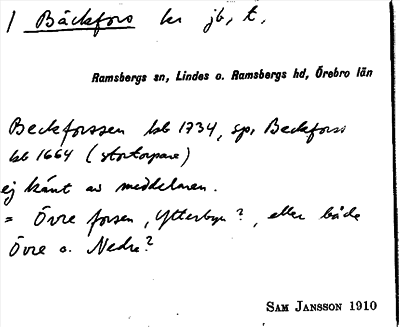 1 Bäckfors hr jb, t,
Ramsbergs sn, Lindes o. Ramsbergs hd, Örebro län
Beckforssen kb 1734, sp. Beckforss
kb 1664 (stortorpare)
ej känt av meddelaren.
= Övre forsen, Ytterbyn?, eller både
Övre o. Nedre?
SAM JANSSON 1910